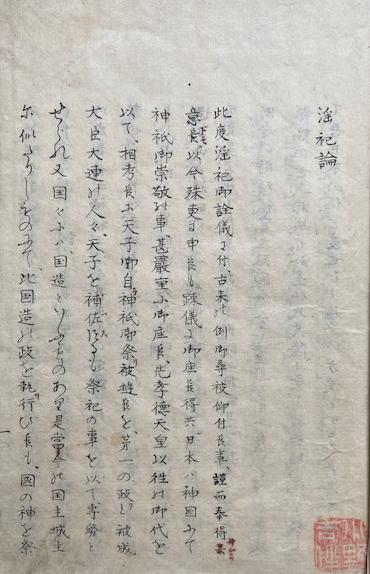 淫祀論
此度淫祀御詮儀ニ付、古来の例御尋被仰付候事、謹而奉得
意候、以今殊更ニ申候も疎儀ニ御座候得共、日本ハ神国ニて
神祇御崇敬の事、甚嚴重に御座候、先孝德天皇以往の御代を
以て、相考候ニ、天子御自神祇御祭被遊候を、第一の政と被成
大臣大連の人々、天子を神佐候も、祭祀の事を以て専務と
せられ又国々にハ、国造といふものあり是當今の国主城主
に似たりしものにて此国造の政を執行ひ候も、國の神を祭